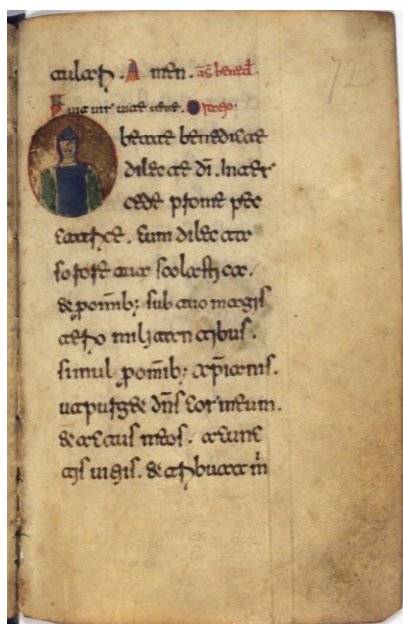 Amen. bened.
Fuit uir uite uene. O ratio.
beate benedicte
dilecte di. Inter
cede p me pec
catrice. cum dilecta
sorore tua scolastica.
& p omib; sub tuo magis
terio militantibus.
simul p omib; xpianis.
ut purget dns cor meum.
& actus meos. a cunc
tis uitiis. & attribuat m